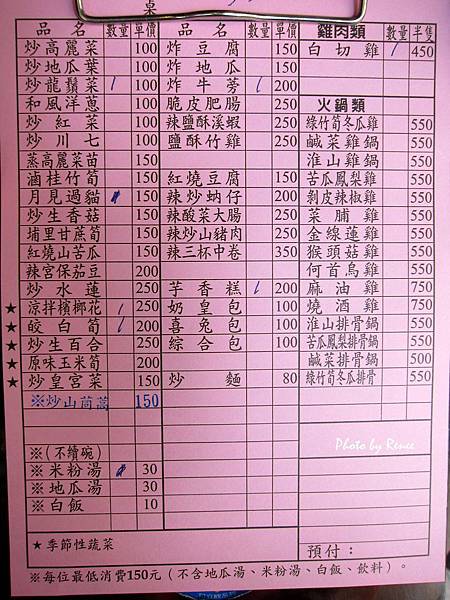 桌
品名 數量 單價 品名 數量 單價 雞肉類 數量 半隻
炒高麗菜 100 炸豆腐 150 白切雞 / 450
炒地瓜葉 100 炸地瓜 150
炒龍鬚菜 / 100 炸牛蒡 / 200
和風洋蔥 100 脆皮肥腸 250 火鍋類
炒紅菜 100 辣鹽酥溪蝦 250 綠竹筍冬瓜雞 550
炒川七 100 鹽酥竹雞 250 鹹菜雞鍋 550
蒸高麗菜苗 150 淮山雞鍋 550
滷桂竹筍 150 紅燒豆腐 150 苦瓜鳳梨雞 550
月見過貓 150 辣炒蚋仔 200 剝皮辣椒雞 550
炒生香菇 150 辣酸菜大腸 250 菜脯雞 550
埔里甘蔗筍 150 辣炒山豬肉 250 金線蓮雞 550
紅燒山苦瓜 150 辣三杯中卷 350 猴頭菇雞 550
辣宮保茄豆 200 何首烏雞 550
炒水蓮 250 芋香糕 / 200 麻油雞 750
★ 涼拌檳榔花 / 250 奶皇包 100 燒酒雞 750
★ 皎白筍 / 200 喜兔包 100 淮山排骨鍋 550
★ 炒生百合 250 綜合包 100 苦瓜鳳梨排骨鍋 550
★ 原味玉米筍 200 鹹菜排骨鍋 500
★ 炒皇宮菜 150 炒麵 80 綠竹筍冬瓜排骨 550
※炒山茼蒿 150
※(不續碗)
※米粉湯 30
※地瓜湯 30
※白飯 10
Photo by Renee
★季節性蔬菜
預付：
※每位最低消費150元（不含地瓜湯、米粉湯、白飯、飲料）。